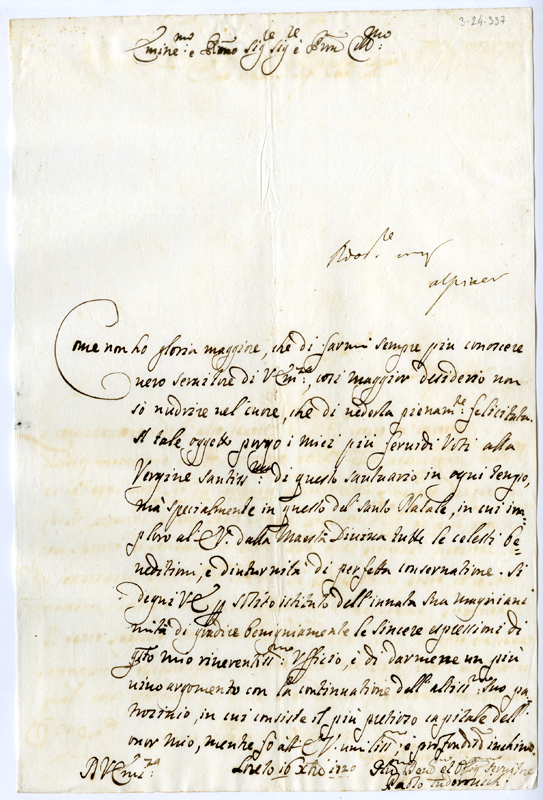 3-24-337
Emine:mo e Sig:re Sig:re e
Come non ho gloria maggiore, che di farmi sempre più conoscere
vero servitore di V. Em:za, così maggior desiderio non
sò nudrire nel cuore, che di vederla pienam:te felicitata.
A tale oggetto porgo i miei più fervidi Voti alla
Vergine Santiss:ma di questo santuario in ogni tempo,
mà specialmente in questo del Santo Natale, in cui im=
ploro all' E.V. dalla Maestà Divina tutte le celesti be=
neditioni, e diuturnità di perfetta conservatione. Si
degni V.E. p solito istituto dell'innata sua magnani
mità di gradire benignamente le sincere espressioni di
q:sto mio riverentiss:mo Ufficio, e di darmene un più
vivo argomento con la continuatione dell'altiss:o Suo pa=
trocinio, in cui consiste il più pretioso capitale dell'
onor mio, mentre fò all' E.V. umiliss:a, e profondiss:a inchino.
D V Em:za
Loreto 16 Xbre
Servitore
Paolo